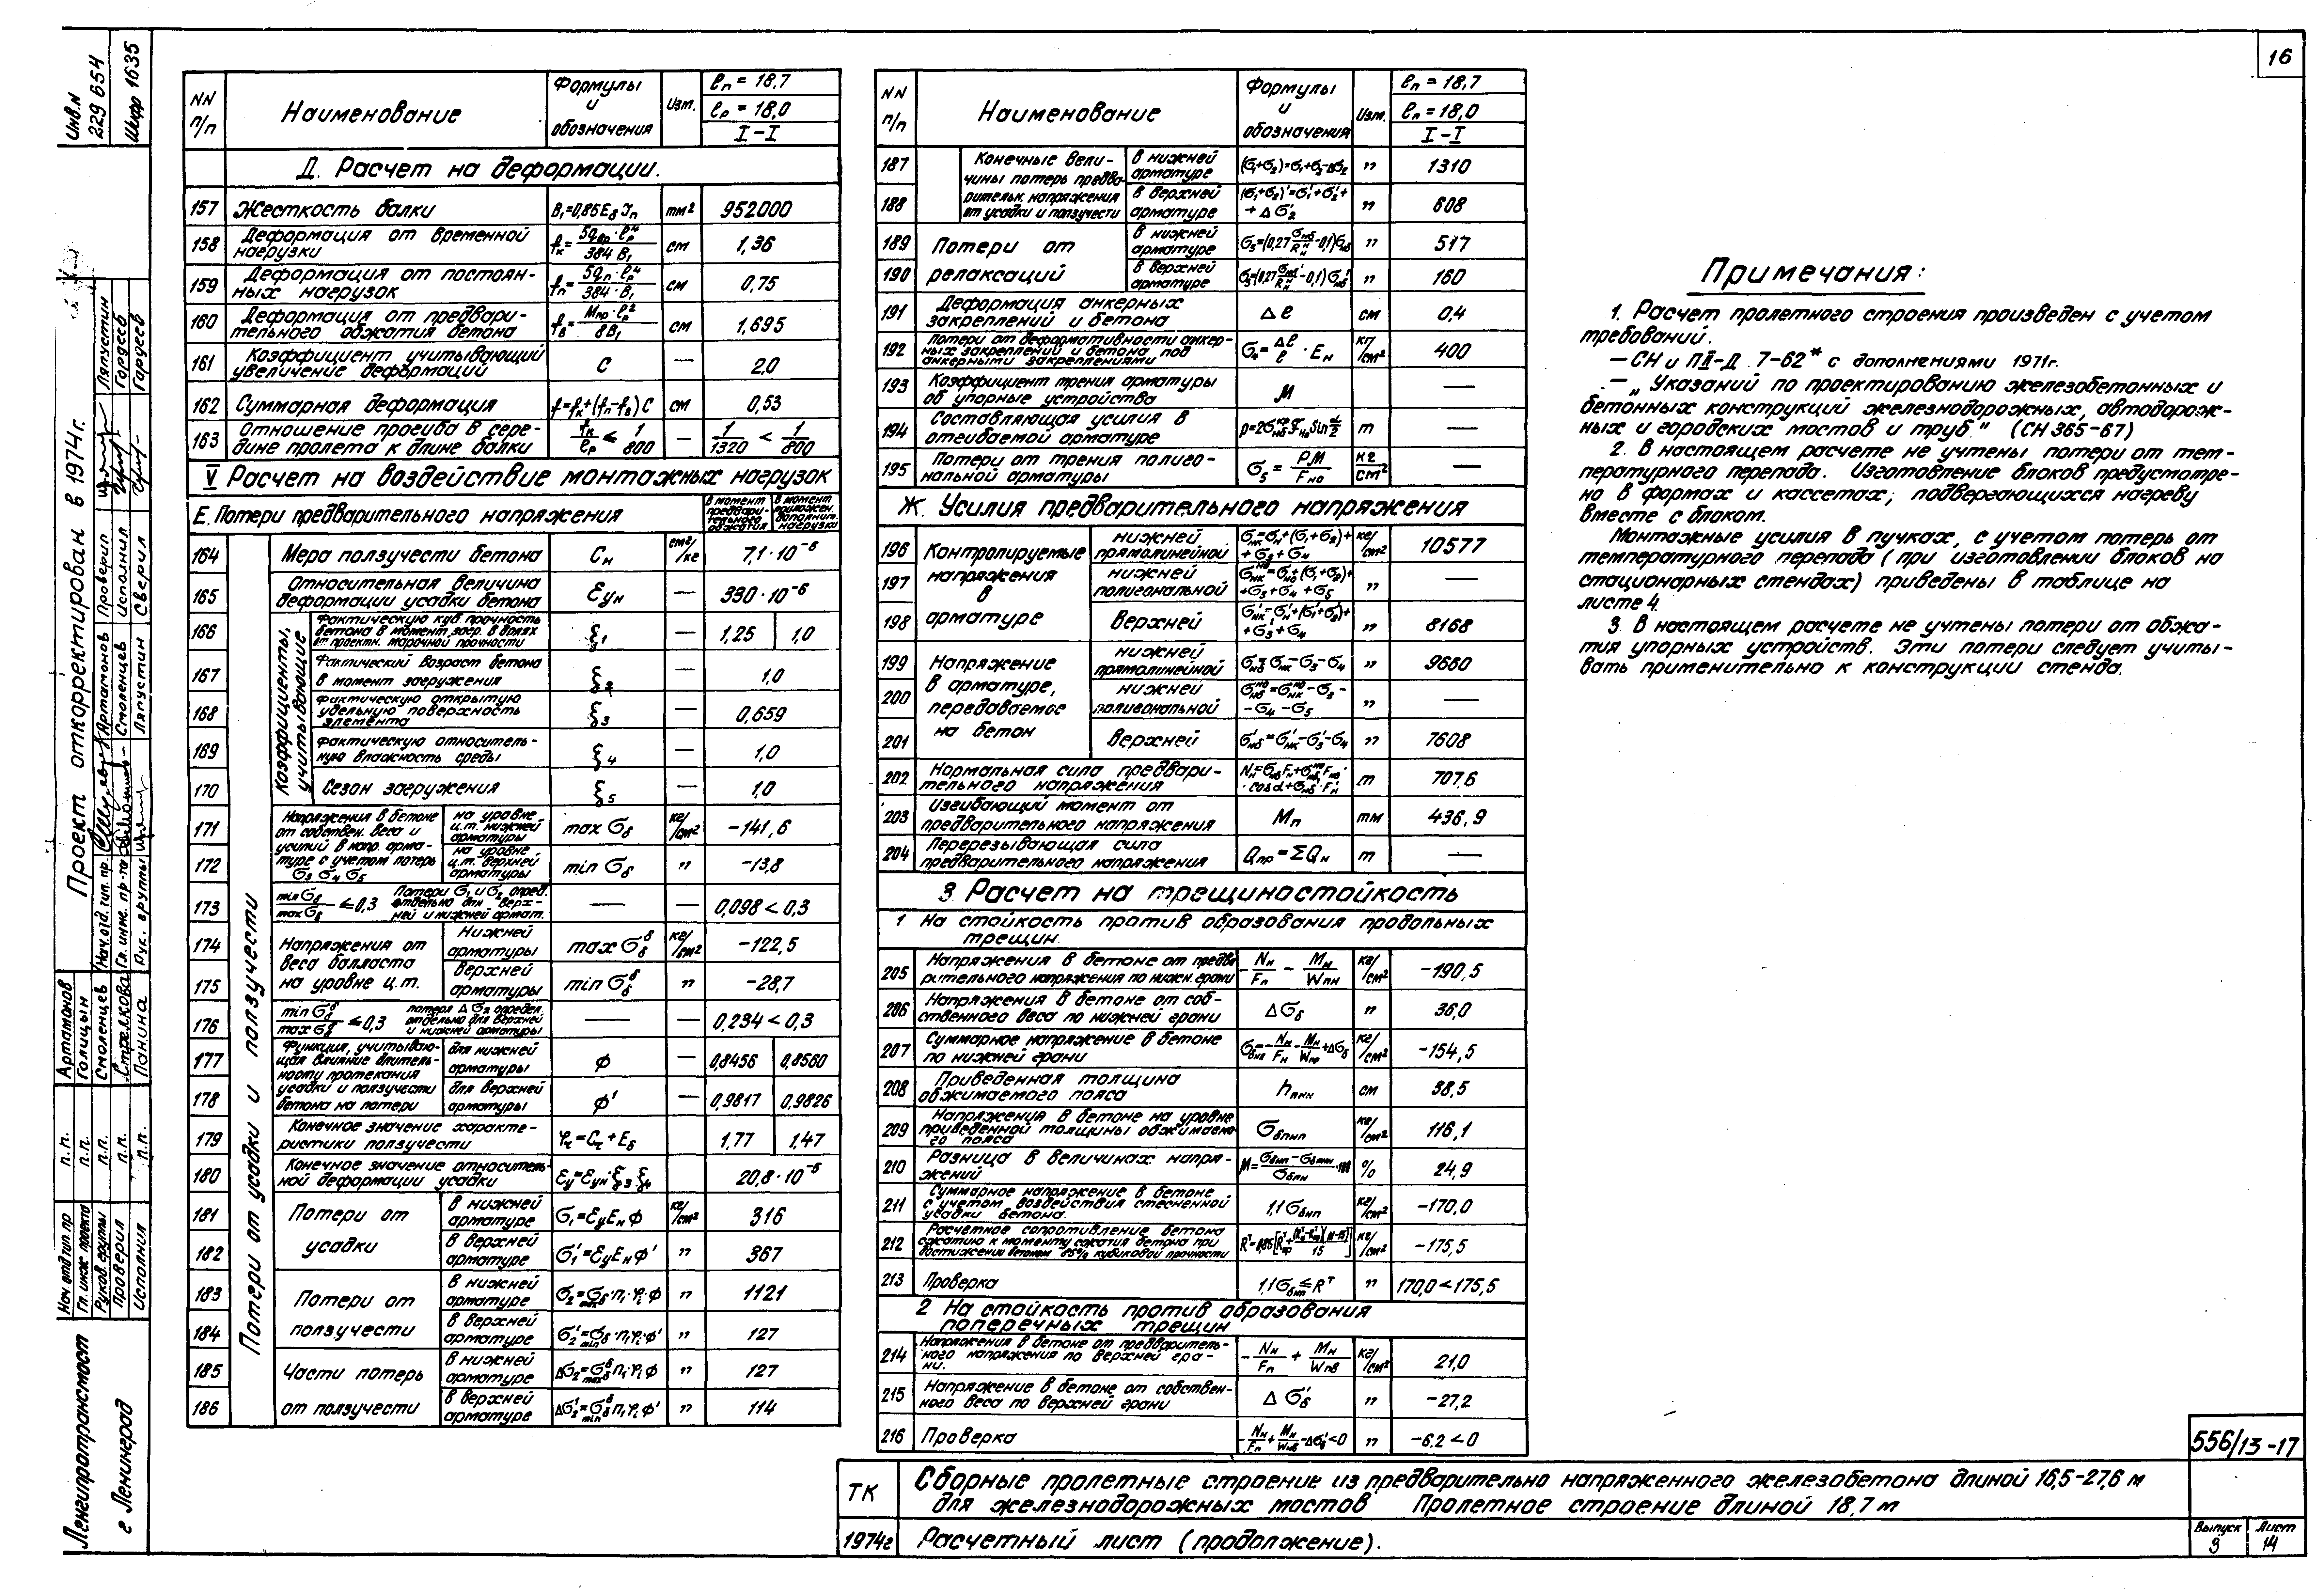 16
Инв.N
229 654
Шифр 1635
Проект откорректирован в 1974г.
NN п/п
Наименование
Формулы и обозначения
Изм.
ℓп = 18,7
ℓр = 18,0
I-I
Д. Расчет на деформации.
157 Жесткость балки B₁=0,85EбJп тм² 952000
158 Деформация от временной нагрузки fк=5qвр·ℓр⁴/384B₁ см 1,36
159 Деформация от постоянных нагрузок fп=5qп·ℓр⁴/384·B₁ см 0,75
160 Деформация от предварительного обжатия бетона fв=Mпр·ℓр²/8B₁ см 1,695
161 Коэффициент учитывающий увеличение деформаций C — 2,0
162 Суммарная деформация f=fк+(fп-fв)C см 0,53
163 Отношение прогиба в середине пролета к длине балки fк/ℓр ≤ 1/800 — 1/1320 < 1/800
V Расчет на воздействие монтажных нагрузок
Е. Потери предварительного напряжения
В момент предварительного обжатия
В момент приложен. дополнит. нагрузки
Потери от усадки и ползучести
164 Мера ползучести бетона Cн см²/кг 7,1·10⁻⁶
165 Относительная величина деформации усадки бетона Ɛун — 330·10⁻⁶
Коэффициенты, учитывающие
166 Фактическую куб. прочность бетона в момент загр. в долях от проектн. марочной прочности ξ₁ — 1,25 1,0
167 Фактический возраст бетона в момент загружения ξ₂ — 1,0
168 Фактическую открытую удельную поверхность элемента ξ₃ — 0,659
169 Фактическую относительную влажность среды ξ₄ — 1,0
170 Сезон загружения ξ₅ — 1,0
Напряжения в бетоне от собствен. веса и усилий в напр. арматуре с учетом потерь σ₃ σ₄ σ₅
171 на уровне ц.т. нижней арматуры max σб кг/см² -141,6
172 на уровне ц.т. верхней арматуры min σб " -13,8
173 min σб/max σб ≤0,3 Потери σ₁ и σ₂ опред. отдельно для верхней и нижней армат. — — 0,098<0,3
Напряжения от веса балласта на уровне ц.т.
174 Нижней арматуры max σбᵟ кг/см² -122,5
175 Верхней арматуры min σбᵟ " -28,7
176 min σбᵟ/max σбᵟ ≤0,3 потеря Δσ₂ определ. отдельно для верхней и нижней арматуры — — 0,234<0,3
Функция, учитывающая влияние длительности протекания усадки и ползучести бетона на потери
177 для нижней арматуры ϕ — 0,8456 0,8560
178 для верхней арматуры ϕ' — 0,9817 0,9826
179 Конечное значение характеристики ползучести φ = C + Eб 1,77 1,47
180 Конечное значение относительной деформации усадки Ɛу=Ɛун·ξ₃·ξ₄ 20,8·10⁻⁶
Потери от усадки
181 в нижней арматуре σ₁=ƐуEнϕ кг/см² 316
182 в верхней арматуре σ₁'=ƐуEнϕ' " 367
Потери от ползучести
183 в нижней арматуре " 1121
184 в верхней арматуре " 127
Части потерь от ползучести
185 в нижней арматуре " 127
186 в верхней арматуре " 114
NN п/п
Наименование
Формулы и обозначения
Изм.
ℓп = 18,7
ℓп = 18,0
I-I
Конечные величины потерь предварительн. напряжения от усадки и ползучести
187 в нижней арматуре (σ₁+σ₂)=σ₁+σ₂-Δσ₂ " 1310
188 в верхней арматуре (σ₁+σ₂)'=σ₁'+σ₂'+ +Δσ₂' " 608
Потери от релаксаций
189 в нижней арматуре " 517
190 в верхней арматуре " 160
191 Деформация анкерных закреплений и бетона Δℓ см 0,4
192 Потери от деформативности анкерных закреплений и бетона под анкерными закреплениями σ₄=Δℓ/ℓ·Eн кг/см² 400
193 Коэффициент трения арматуры об упорные устройства M —
194 Составляющая усилия в отгибаемой арматуре т —
195 Потери от трения полигональной арматуры σ₅=PM/Fно кг/см² —
Ж. Усилия предварительного напряжения
Контролируемые напряжения в арматуре
196 нижней прямолинейной кг/см² 10577
197 нижней полигональной " —
198 Верхней " 8168
Напряжение в арматуре, передаваемое на бетон
199 нижней прямолинейной " 9660
200 нижней полигональной " —
201 верхней " 7608
202 Нормальная сила предварительного напряжения т 707,6
203 Изгибающий момент от предварительного напряжения Mп тм 436,9
204 Перерезывающая сила предварительного напряжения Qпр=ΣQн т —
З. Расчет на трещиностойкость
1 На стойкость против образования продольных трещин.
205 Напряжения в бетоне от предварительного напряжения по нижн. грани -Nн/Fп - Mн/Wпн кг/см² -190,5
206 Напряжения в бетоне от собственного веса по нижней грани Δσб " 36,0
207 Суммарное напряжение в бетоне по нижней грани кг/см² -154,5
208 Приведенная толщина обжимаемого пояса hпнн см 38,5
209 Напряжения в бетоне на уровне приведенной толщины обжимаемого пояса σбпнп кг/см² 116,1
210 Разница в величинах напряжений % 24,9
211 Суммарное напряжение в бетоне с учетом воздействия стесненной усадки бетона 1,1σбнп кг/см² -170,0
212 Расчетное сопротивление бетона сжатию к моменту сжатия бетона при достижении бетоном 85% кубиковой прочности кг/см² -175,5
213 Проверка 1,1σбнп ≤ Rᵀ " 170,0<175,5
2 На стойкость против образования поперечных трещин
214 Напряжения в бетоне от предварительного напряжения по верхней грани. -Nн/Fп + Mн/Wпв кг/см² 21,0
215 Напряжение в бетоне от собственного веса по верхней грани Δσб' " -27,2
216 Проверка -Nн/Fп+Mн/Wпв-Δσб'<0 " -6.2<0
Примечания:
1. Расчет пролетного строения произведен с учетом
требований.
— СН и П II-Д. 7-62* с дополнениями 1971г.
— „Указаний по проектированию железобетонных и
бетонных конструкций железнодорожных, автодорож-
ных и городских мостов и труб." (СН 365-67)
2. В настоящем расчете не учтены потери от тем-
пературного перепада. Изготовление блоков предусмотре-
но в формах и кассетах, подвергающихся нагреву
вместе с блоком.
Монтажные усилия в пучках, с учетом потерь от
температурного перепада (при изготовлении блоков на
стационарных стендах) приведены в таблице на
листе 4.
3. В настоящем расчете не учтены потери от обжа-
тия упорных устройств. Эти потери следует учиты-
вать применительно к конструкции стенда.
Нач.отд.тип.пр. Артамонов
Гл.инж.пр-та Смоленцев
Рук. группы Ляпустин
Проверил Ляпустин
Исполнил Гордеев
Сверил Гордеев
Нач отд тип.пр п.п. Артамонов
Гл. инж. проекта п.п. Голицын
Руков. группы п.п. Смоленцев
Проверил п.п. Стрелкова
Исполнил п.п. Панина
Ленгипротрансмост
г Ленинград
556/13-17
ТК
Сборные пролетные строение из предварительно напряженного железобетона длиной 16,5-27,6 м
для железнодорожных мостов Пролетное строение длиной 18,7 м
1974г
Расчетный лист (продолжение).
Выпуск 3
Лист 14